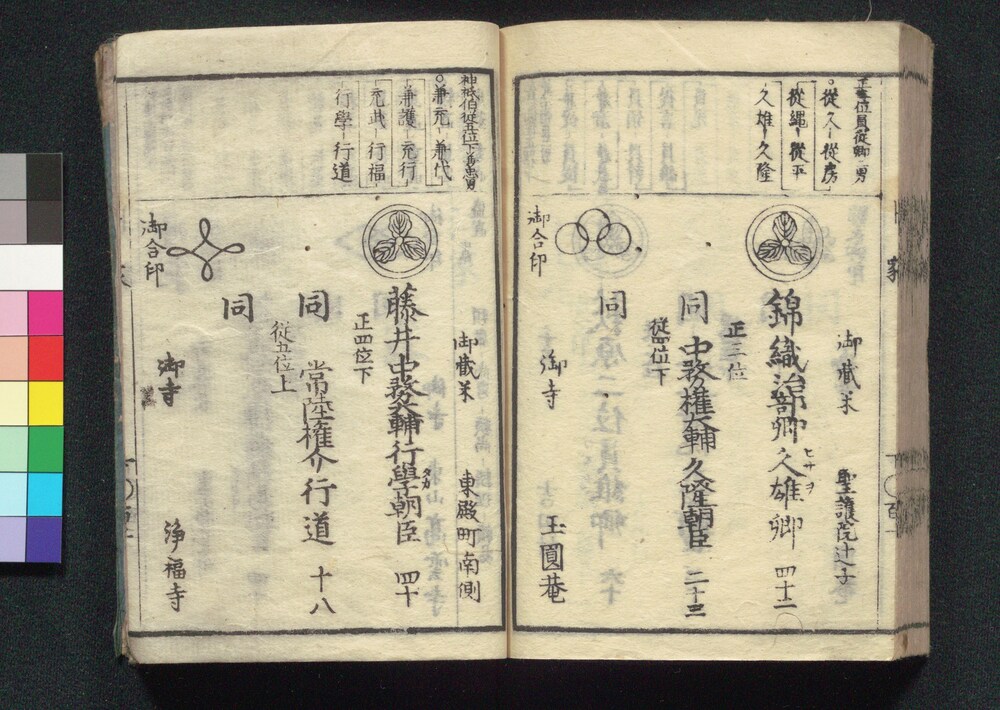 正三位員從卿二男
從久―從房
從縄―從平
久雄―久隆
御蔵米
聖護院辻子
錦織治部卿久雄卿 四十二
ヒサヲ
正三位
同 中務権大輔久隆朝臣 二十三
従四位下
同
御合印
御寺
玉圓菴
家
神祇伯従五位下
兼充―兼代
兼護―充行
充武―行福
行學―行道
御蔵米
東殿町南側
藤井中務大輔行學朝臣 四十
正四位下
同 常陸権介行道 十八
従五位上
同
御合印
御寺
浄福寺